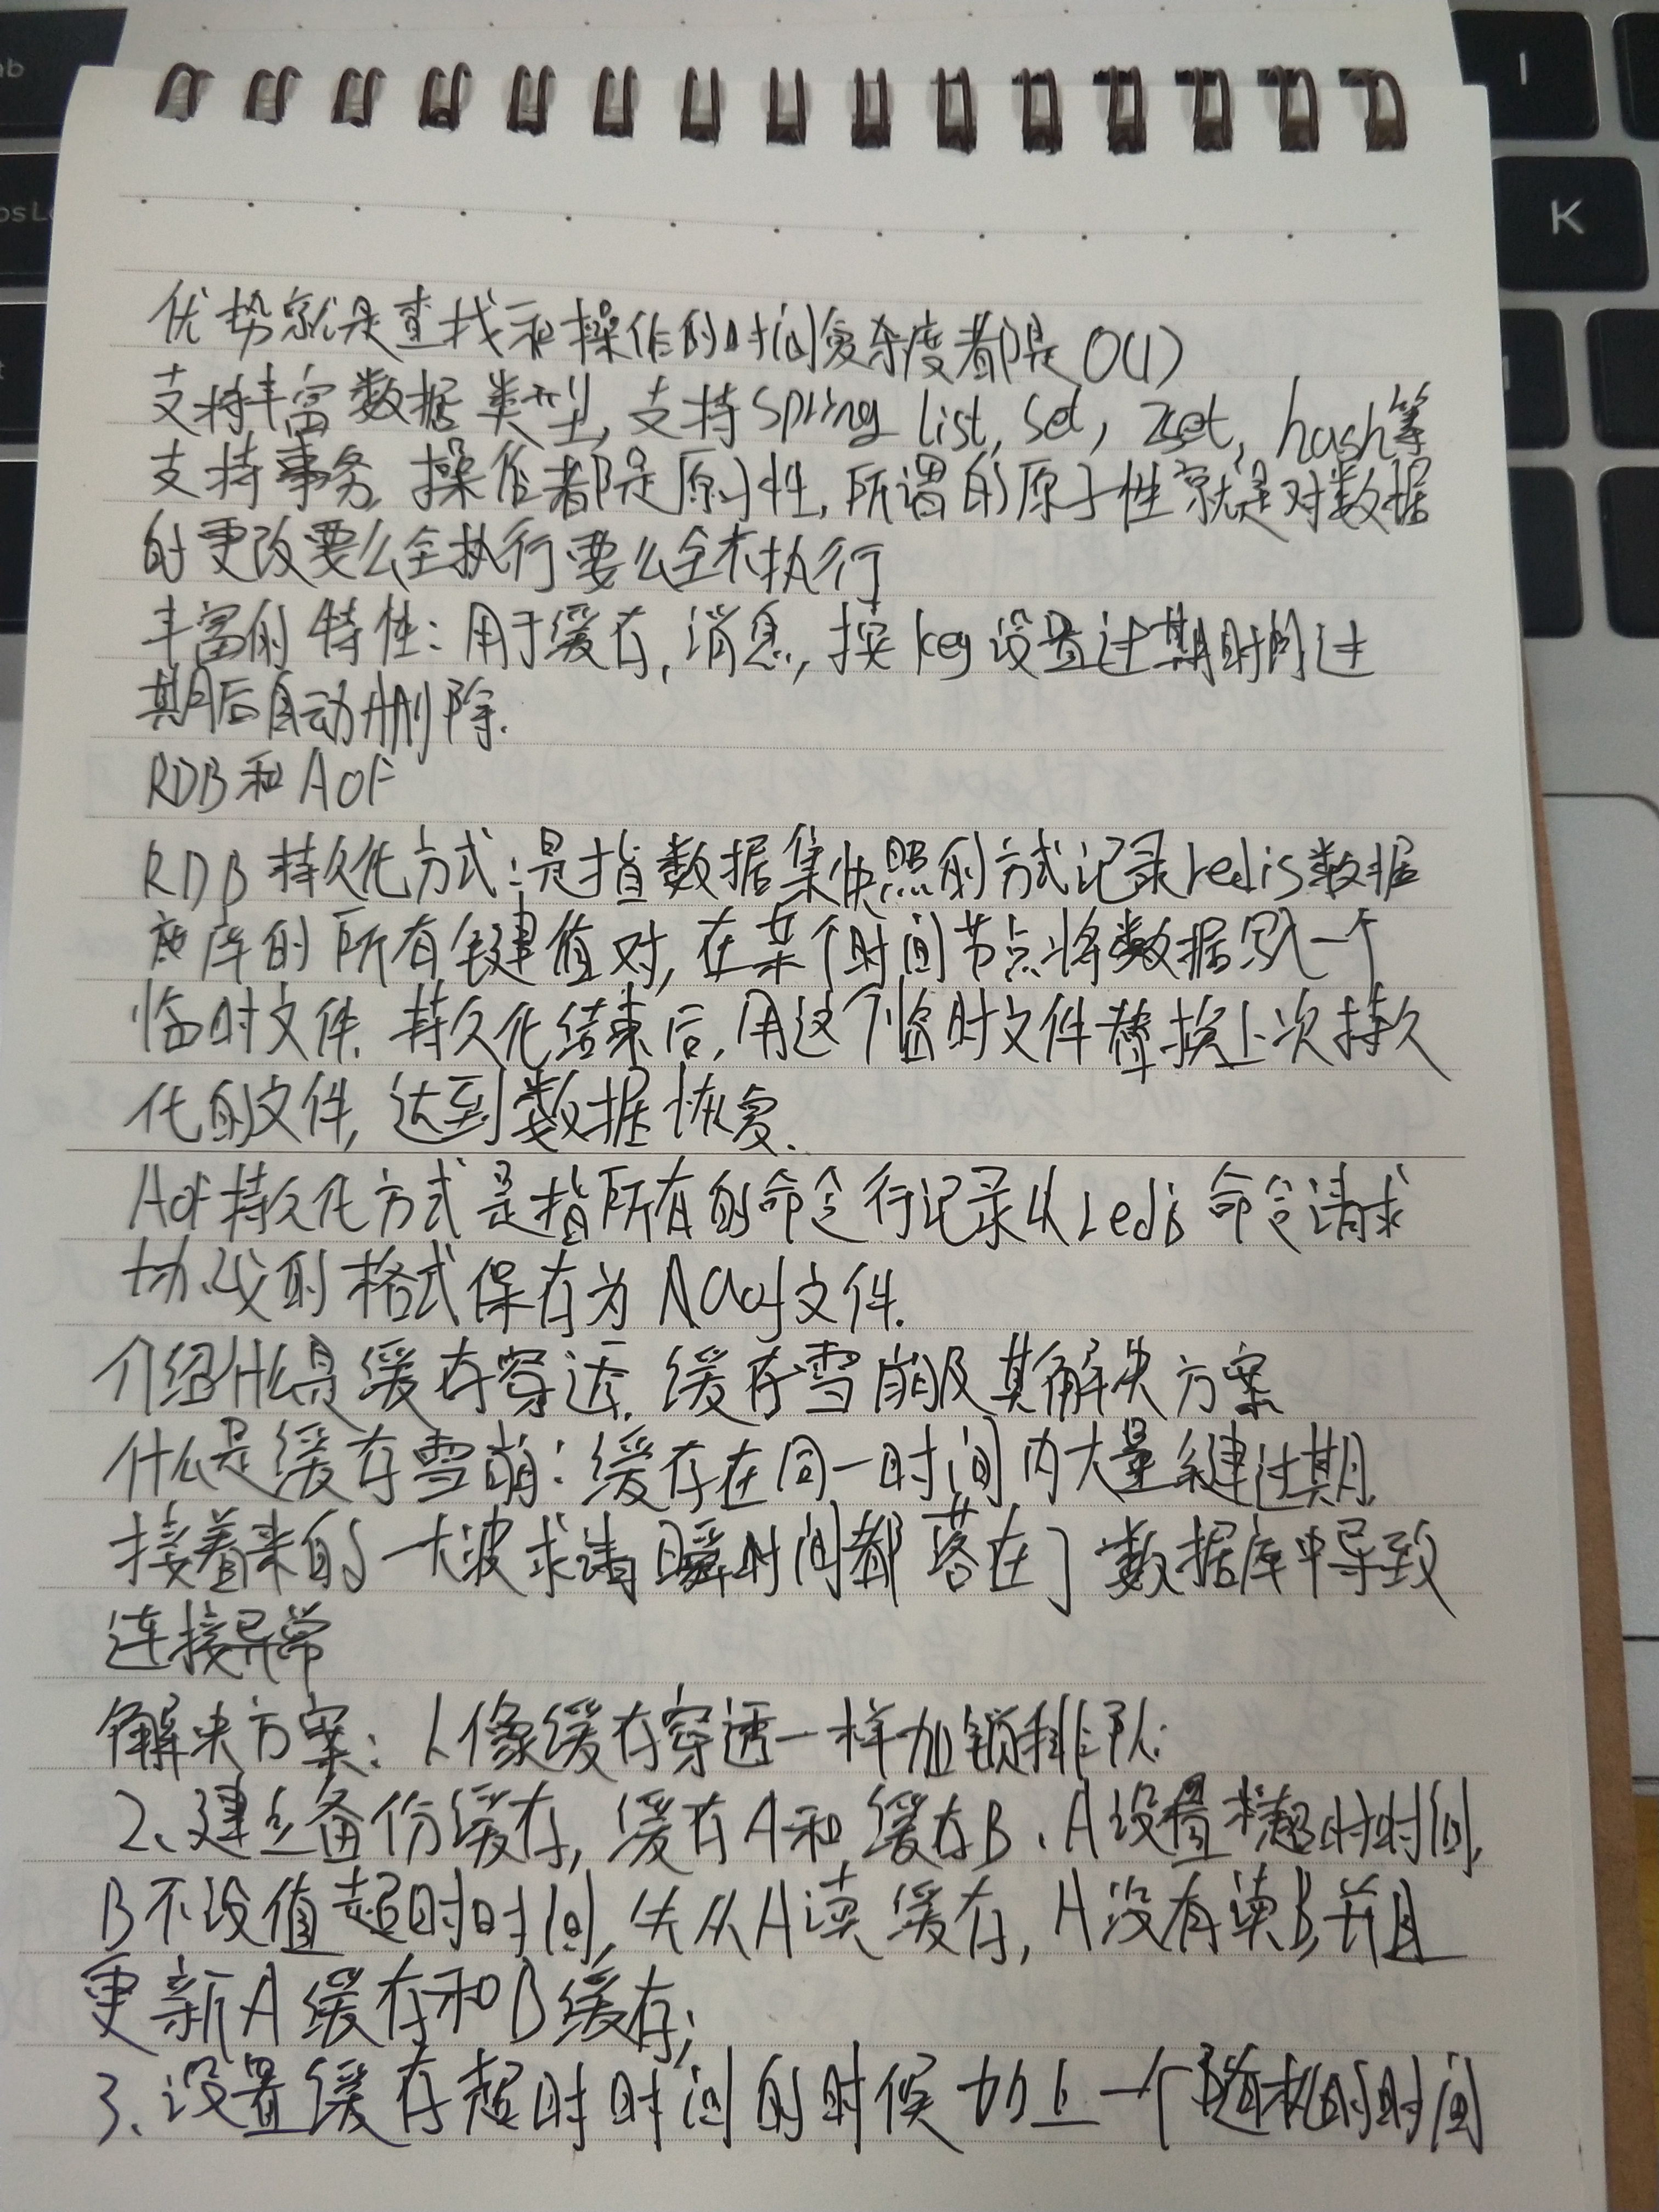 优势就是查找和操作的时间复杂度都是O(1)
支持丰富数据类型,支持spring list, set, zset, hash等
支持事务,操作都是原子性,所谓的原子性就是对数据
的更改要么全执行要么全不执行
丰富的特性:用于缓存,消息,按key设置过期时间过
期后自动删除.
RDB和AOF
RDB持久化方式:是指数据集快照的方式记录redis数据
库的所有键值对,在某个时间节点将数据写入一个
临时文件.持久化结束后,用这个临时文件替换上次持久
化的文件,达到数据恢复.
AOF持久化方式是指所有的命令行记录以redis命令请求
协议的格式保存为Aof文件.
介绍什么是缓存穿透.缓存雪崩及其解决方案
什么是缓存雪萌:缓存在同一时间内大量键过期,
接着来的一大波求请瞬时间都落在了数据库中导致
连接异常
解决方案:1.像缓存穿透一样加锁排队;
2、建立备份缓存,缓存A和缓存B、A设置超时时间,
B不设值超时时间,失从A读缓存,A没有读B,并且
更新A缓存和B缓存;
3、设置缓存超时时间的时候加上一个随机的时间
Tab
Caps Lo
I
K